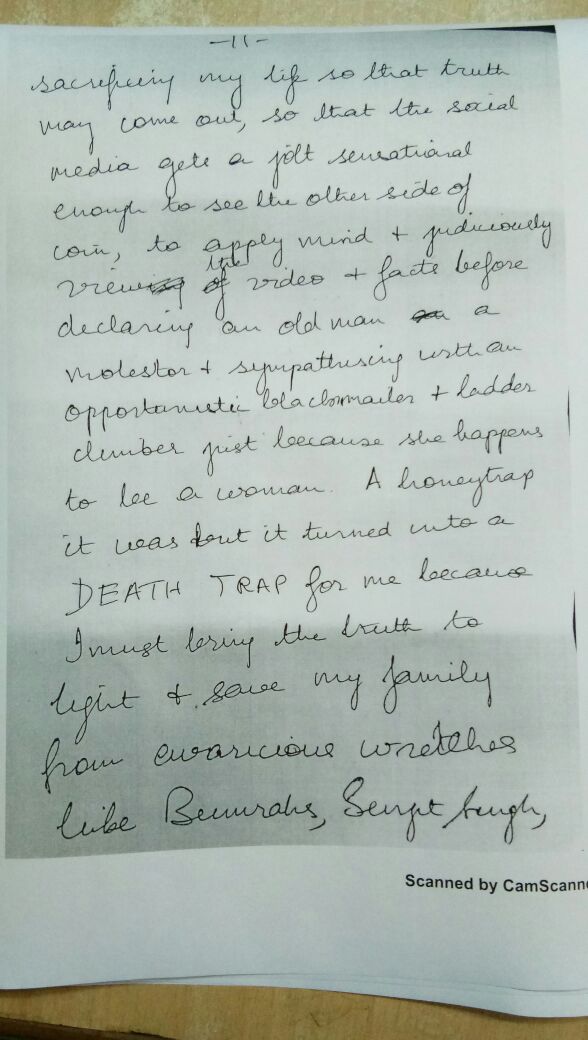 -11-
sacrificing my life so that truth
may come out, so that the social
media gets a jolt sensational
enough to see the other side of
coin, to apply mind + judiciously
view the video + facts before
declaring an old man a
molestor + sympathising with an
opportunistic blackmailer + ladder
climber just because she happens
to be a woman. A honeytrap
it was but it turned into a
DEATH TRAP for me because
I must bring the truth to
light & save my family
from avaricious wretches
like Singh,
Scanned by CamScanne